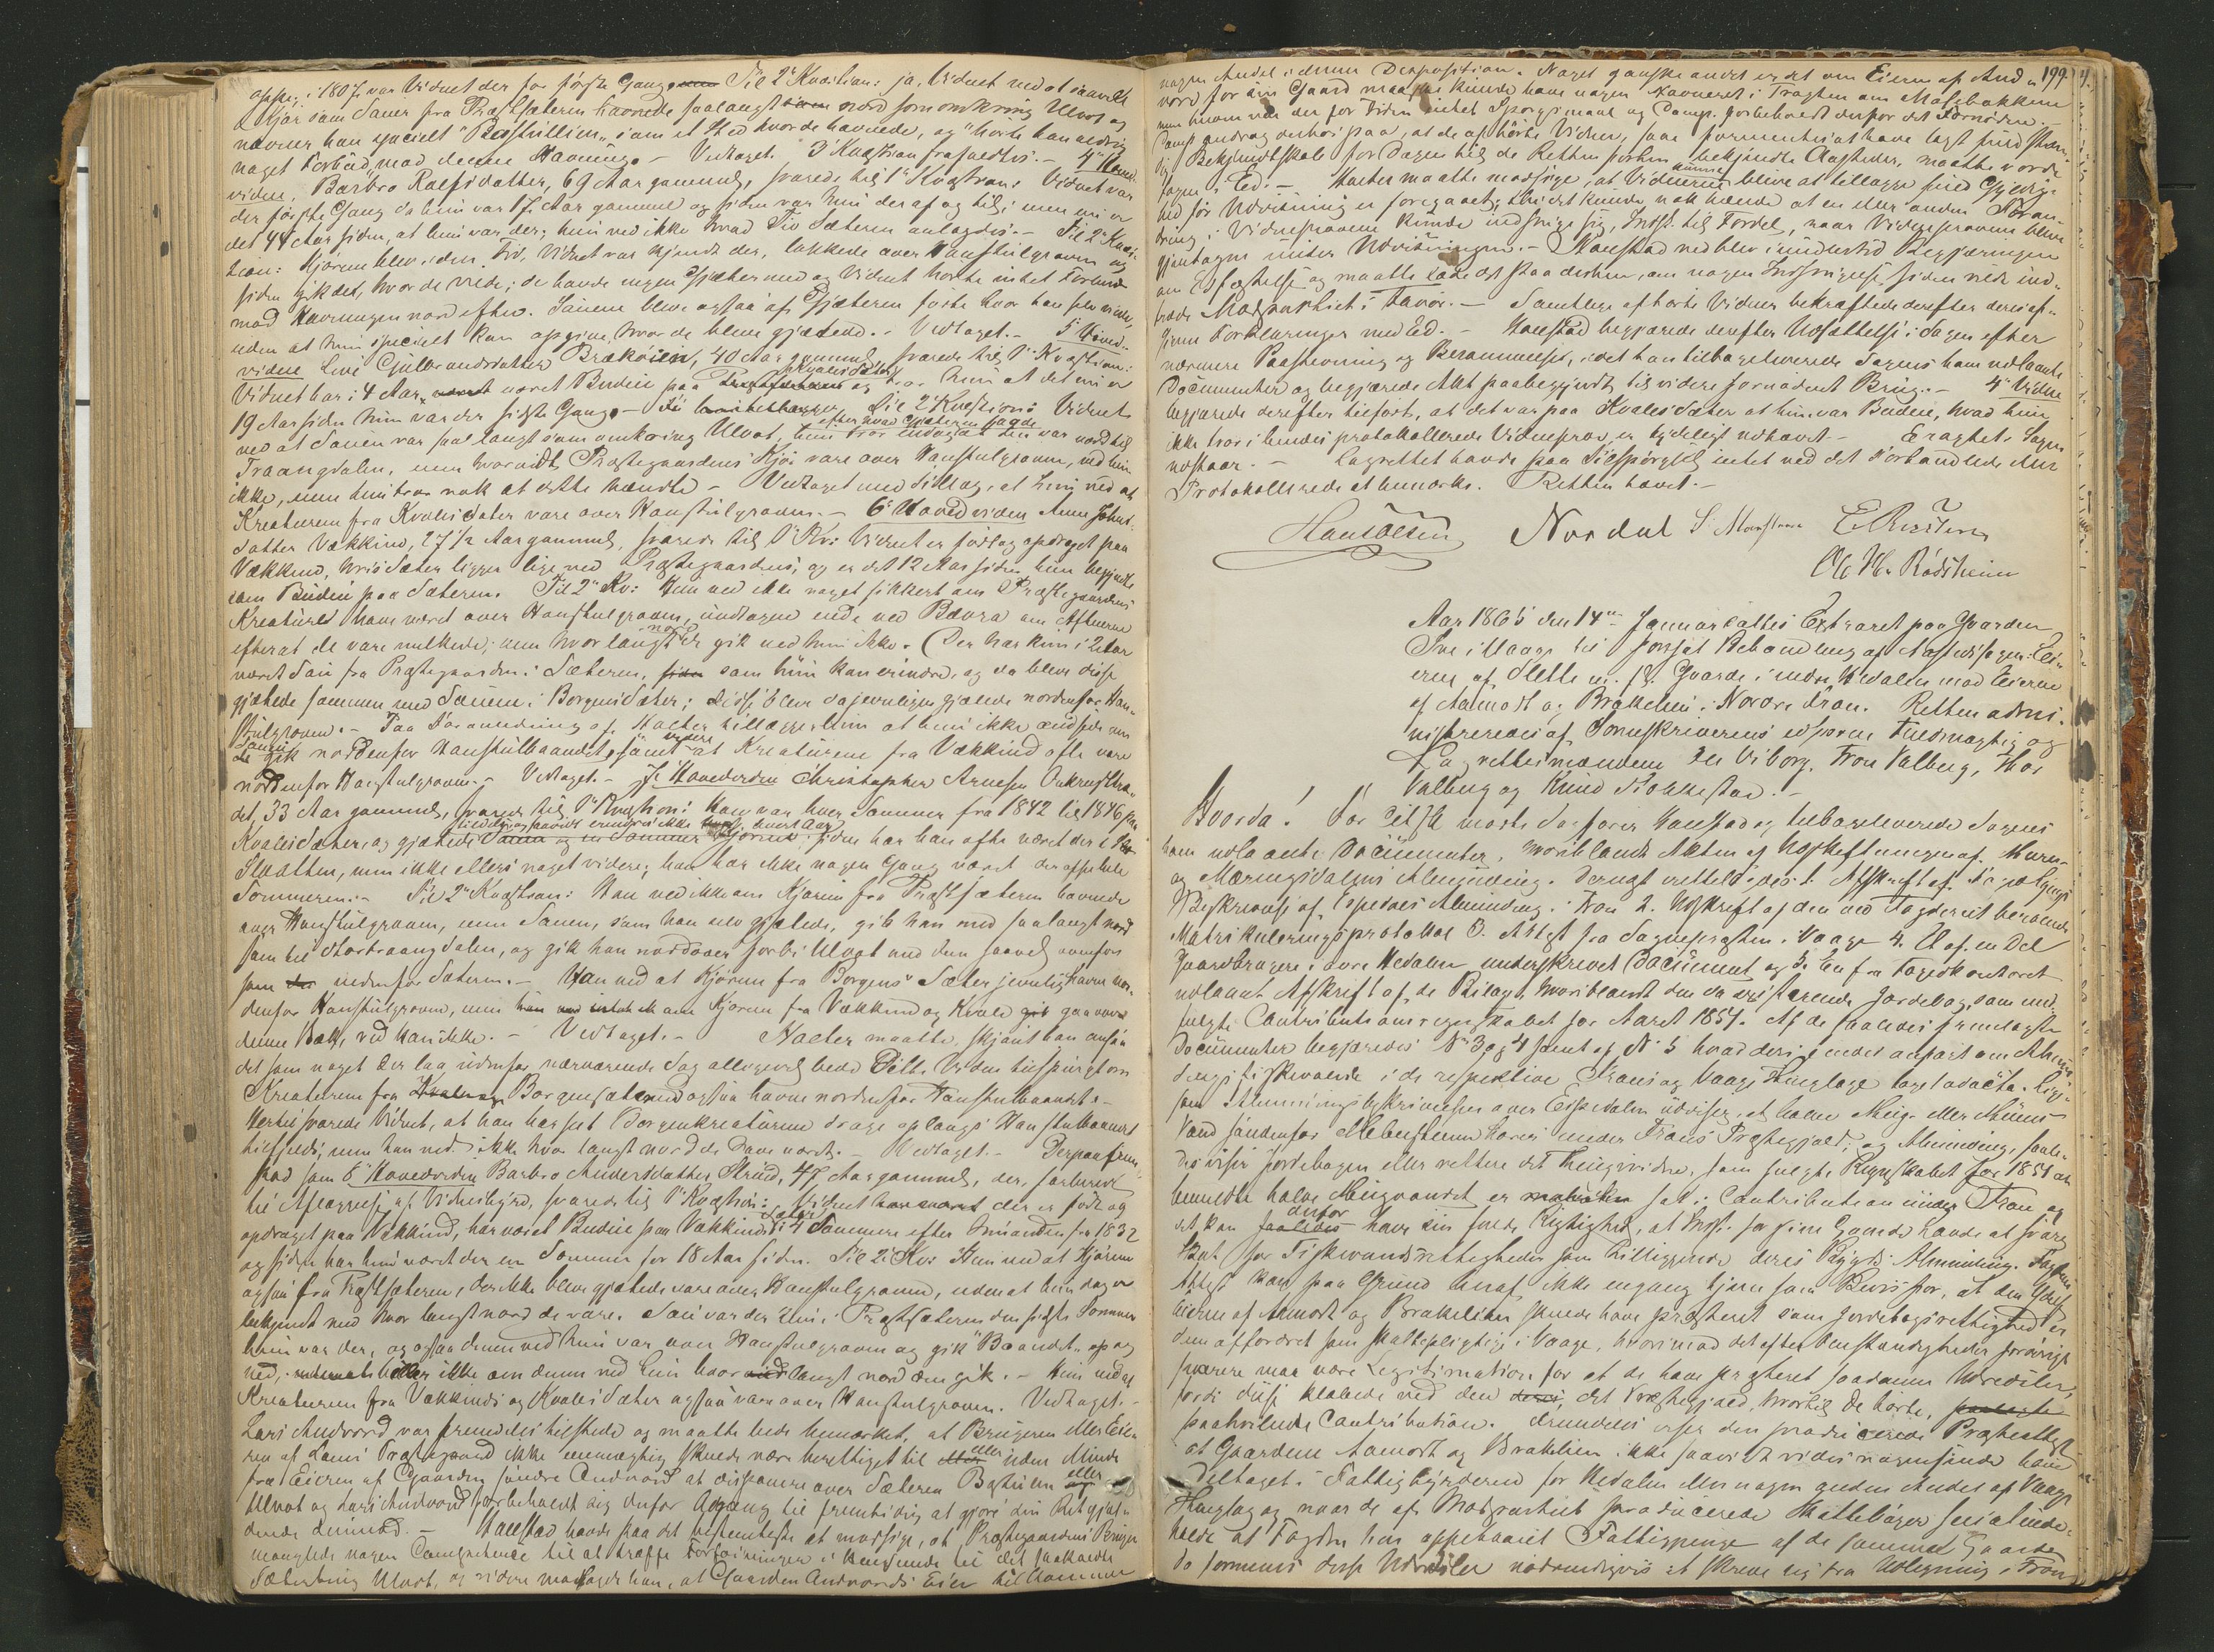 oppe; i 1807 var Vidnet der for første Gang. Til 2 Kvæstion: ja, Vidnet ved at saavel
Kjør som Sauer fra Præstsæteren havnede saalangt nord som omkring Ulvot og
nævner han specielt "Bæstullien" som et Sted hvor de havnede, og hørte han aldrig
noget Forbud mod denne Havning. - Vedtaget. 3 Kvæstion frafaldtes. - 4 Hoved-
vidne, Barbro Rolfsdatter, 69 Aar gammel, svarede til 1 Kvæstion: Vidnet var
der første Gang da hun var 17 Aar gammel og siden var hun der af og til; men nu er
det 44 Aar siden, at hun var der; hun ved ikke hvad Tid Sæteren anlagdes. - Til 2 Kvæs-
tion: Kjørene blev i den Tid, Vidnet var kjendt der, lukkede over Hanstulgroven og
siden gik det, hvor de vilde; de havde ingen Gjæter med og Vidnet hørte intet Forbud
mod Havningen nordefter. Sauene bleve ogsaa af Gjæteren førte hvor han selv vilde,
uden at hun specielt kan opgive, hvor de bleve gjætede. - Vedtaget. - 5 Hoved-
vidne Live Gulbrandsdatter Brækøien, 40 Aar gammel, svarede til 1 Kvæstion:
Vidnet har i 4 Aar været Budeie paa Kvalessæter og tror hun at det nu er
19 Aar siden hun var der sidste Gang. - Til 2 Kvæstion: Vidnet
ved at Sauen var saa langt som omkring Ulvot, efter hvad Gjæteren sagde hun tror endog at den var nord til
Traangdalen, men hvorvidt Præstegaardens Kjør vare over Hanstulgroven, ved hun
ikke, men hun tror nok at dette hændte - Vedtaget med Tillæg, at hun ved at
Kreaturene fra Kvalessæter vare over Hanstulgroven. - 6 Hovedvidne Anne Johns-
datter Vækkind, 27 1/2 Aar gammel, svarede til 1 Kv: Vidnet er født og opdraget paa
Vækkind, hvis Sæter ligger lige ved Præstegaardens, og er det 12 Aar siden hun begyndte
som Budeie paa Sæteren. Til 2 Kv: Hun ved ikke noget sikkert om Præstegaardens
Kreaturer have været over Hanstulgroven, undtagen nede ved Bævra om Aftenerne
efterat de vare melkede; men hvor langt nord de gik ved hun ikke. (Der har kun i 2 Aar
været Sau fra Præstegaarden i Sæteren, som hun kan erindre, og da bleve disse
gjætede sammen med Sauene i Borgens Sæter; disse bleve da jevnligen gjætede nordenfor Han-
stulgroven. - Paa Foranledning af Haeter tillægger hun at hun ikke ændsede om
Sauen gik nordenfor Hanstulbaandet, samt videre at Kreaturene fra Vækkind ofte vare
nordenfor Hanstulgroven. - Vedtaget. - 7 Hovedvidne Christopher Arnesen
det, 33 Aar gammel, svarede til 1 Kvæstion: Han var hver Sommer fra 1842 til 1846 paa
Kvales Sæter, og gjætede siden har han ofte været der i
Slaatten, men ikke ellers noget videre; han har ikke nogen Gang været der oppe hele
Sommeren. - Til 2 Kvæstion: Han ved ikke om Kjørene fra Præstsæteren havnede
over Hanstulgroven, men Sauen, som han selv gjætede, gik han med saalangt nord
som til Stortraangdalen, og gik han nordover forbi Ulvot med den saavel ovenfor
som nedenfor Sæteren. - Han ved at Kjørene fra Borgens Sæter jevnlig havne nor-
denfor Hanstulgroven, men om Kjørene fra Vækkind og Kvale gaa over
denne Bæk, ved han ikke. - Vedtaget. - Haeter maatte, skjønt han ansaa
det som noget der laa udenfor nærværende Sag alligevel bede Vidnet tilspurgt om
Kreaturene fra Borgensæteren ogsaa havne nordenfor Hanstulbaandet. -
Hertil svarede Vidnet, at han har seet Borgenkreaturene drage oplangs Hanstulbaandet
tilfjelds; men han ved ikke hvor langt nord de have været. - Vedtaget. - Derpaa frem-
stod som 8 Hovedvidne Barbro Andersdatter Strind, 47 Aar gammel, der, forberedt
til Aflæggelse af Vidnesbyrd, svarede til 1 Kvæstion: Vidnet der er født og
opdraget paa Vækkind, har været Budeie paa Vækkinds Sæter i 4 Sommere efter hinanden fra 1832
og siden har hun været der en Sommer for 18 Aar siden. Til 2 Kv: Hun ved at Kjørene
ogsaa fra Præstsæteren, der ikke bleve gjætede vare over Hanstulgroven, uden at hun dog er
bekjendt med hvor langt nord de vare. Sau var der kun i Præstsæteren den sidste Sommer
hun var der, og ogsaa denne ved hun var over Hanstulgroven og gik "Baandet" op og
ned, heller ikke om denne ved hun hvor langt nord den gik. - Hun ved at
Kreaturene fra Vækkinds og Kvales Sæter ogsaa vare over Hanstulgroven. Vedtaget. -
Lars Andvord var fremdeles tilstede og maatte bede bemærket, at Brugeren eller Eie-
ren af Loms Præstegaard ikke eenmægtig skulde være berettiget til eller uden Minde
fra Eieren af Gaarden søndre Andvord at disponere over Sæteren Bæstulen eller
Ulvot og Lars Andvord forbeholdt sig derfor Adgang til fremtidig at gjøre sin Ret gjæl-
dende derimod. - Haustad havde paa det bestemteste at modsige, at Præstegaardens Bruger
manglede nogen Competence til at træffe Forføininger i Henseende til det saakaldte
Sæterbrug Ulvot, og videre modsagde han, at Gaarden Andvords Eier tilkommer
199
nogen Andel i denne Disposition. Noget ganske andet er det om Eieren af And-
vord for sin Gaard maaske kunde have nogen Havneret i Tragten om Mosebakken
men herom var der for Tiden intet Spørgsmaal og Comp. forbeholdt derfor det Fornødne. -
Comp. androg derhos paa, at de afhørte Vidner, som formentes at have lagt fuld-
dig Bekjendtskab for Dagen til de Retten forhen bekjendte Aasteder, maatte vorde
tagne i Ed. - Haeter maatte modsige, at Vidnerne kunne blive at tillægge fuld Gyldig-
hed før Udvisning er foregaaet; thi det kunde nok hænde at en eller anden Foran-
dring i Vidneprovene kunde indsnige sig, Indst. til Fordel, naar Vidneprovene bleve
gjentagne under Udvisningen. - Haustad
om Edfæstelse og maatte lade det staa derhen, om nogen Indsigelse siden vilde ind-
træde Modpartiet i Favør. - Samtlige afhørte Vidner bekræftede derefter deres af-
givne Forklaringer med Ed. - Haustad begjærede derefter Udsættelse i Sagen efter
nærmere Paastevning og Berammelse, idet han tilbageleverede Sagens ham udlaante
Documenter og begjærede Akt paabegyndt til videre fornødent Brug. - 4 Vidne
begjærede derefter tilført, at det var paa Kvales Sæter at hun var Budeie, hvad hun
ikke tror i hendes protokollerede Vidneprov er tydeligt udhævet. - Eragtet: Sagen
udstaar. - Lagrettet havde paa Tilspørgsel intet ved det Forhandlede eller
Protokollerede at bemærke. Retten hævet. -
Hans Olsen Nordal E. Risten
Ole H. Rødsheim
Aar 1865 den 14 Januar sattes Extraret paa Gaarden
Sve i Vaage til fortsat Behandling af Aastedssagen: Eie-
erne af Slette m. fl. Gaarde i nedre Hedalen mod Eierne
af Aamodt og Brækelien i Nordre Fron. Retten admi-
nistreredes af Sorenskriverens edsvorne Fuldmægtig og
Lagrettesmændene Ole Viborg, Tron Valberg, Thor
Valberg og Knud Stokkestad. -
Hvorda! For Citste mødte Sagfører Haustad og tilbageleverede Sagens
ham udlaante Documenter, hvoriblandt Akten af
og Mæringsdalens Almindinger. Dernæst vedlægges 1. Afskrift af
Beskrivelse af Espedals Alminding i Fron 2. Udskrift af den ved Fogderiet beroende
Matrikuleringsprotokol 3. Attest fra Sognepræsten i Vaage 4. Et af en Del
Gaardbrugere i øvre Hedalen underskrevet Document og 5. En fra Fogedkontoret
udlaant Afskrift af de Bilag, hvoriblandt den da existerende Jordebog, som med-
fulgte Contributionsregnskabet for Aaret 1657. Af de saaledes fremlagte
Documenter begjæredes No 3 og 4 samt af No 5 hvad deri findes anført om Almin-
dings Fiskevande i de respektive Frons og Vaage Thinglage taget ad acta. Lige-
som Almindingsbeskrivelsen over Espedalen udviser, at halve Heig- eller Heimes
Vand søndenfor Mebersteenen hører under Frons Præstegjæld og Alminding, saale-
des viser Jordebogen eller rettere det Thingvidne, som fulgte Regnskabet for 1651 at
bemeldte halve Heigvandet er sat i Contribution under Fron og
det kan derfor have sin fulde Rigtighed, at Indst. for sine Gaarde havde at svare
Skat for Fiskevandsrettigheder som tilliggende deres Bygds Alminding. Fogdens
Attest kan paa Grund heraf ikke engang tjene som Beviis for, at den Ydelse
Eierne af Aamodt og Brækelien skulde have præsteret som Jordebogsrettighed er
dem affordret som skattepligtige i Vaage, hvorimod det efter Omstændigheder forøvrigt
snarere maa være Legitimation for at de have præsteret saadanne Udredsler,
fordi disse klæbede ved den det Præstegjæld, hvortil de hørte,
paahvilende Contribution. Fremdeles viser den producerede Præsteattest
at Gaardene Aamodt og Brækelien ikke saavidt vides nogensinde have
deltaget i Fattigbyrderne for Hedalen eller nogen anden Andel af Vaage
Thinglag og naar de af Modpartiet producerede Skattebøger
holde at Fogden har oppebaaret Fattigpenge af de samme Gaarde
da formenes disse Udredsler nødvendigvis at skrive sig fra Udligning i Fron